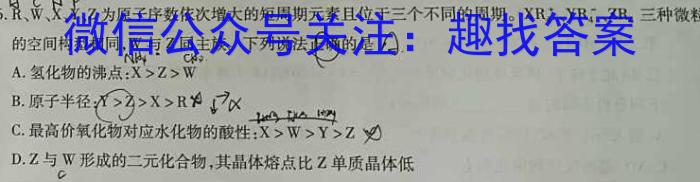 5. R、W、X、Y、Z为原子序数依次增大的短周期元素且位于三个不同的周期。XR₄⁺、YR₄⁻、ZR₄三种微粒
的空间构型相同,W与Z同主族。下列说法正确的是
微信公众号关注：趣找答案
A. 氢化物的沸点:X>Z>W
B. 原子半径:Y>Z>X>R
C. 最高价氧化物对应水化物的酸性:X>W>Y>Z
D. Z与W形成的二元化合物,其晶体熔点比Z单质晶体低
C